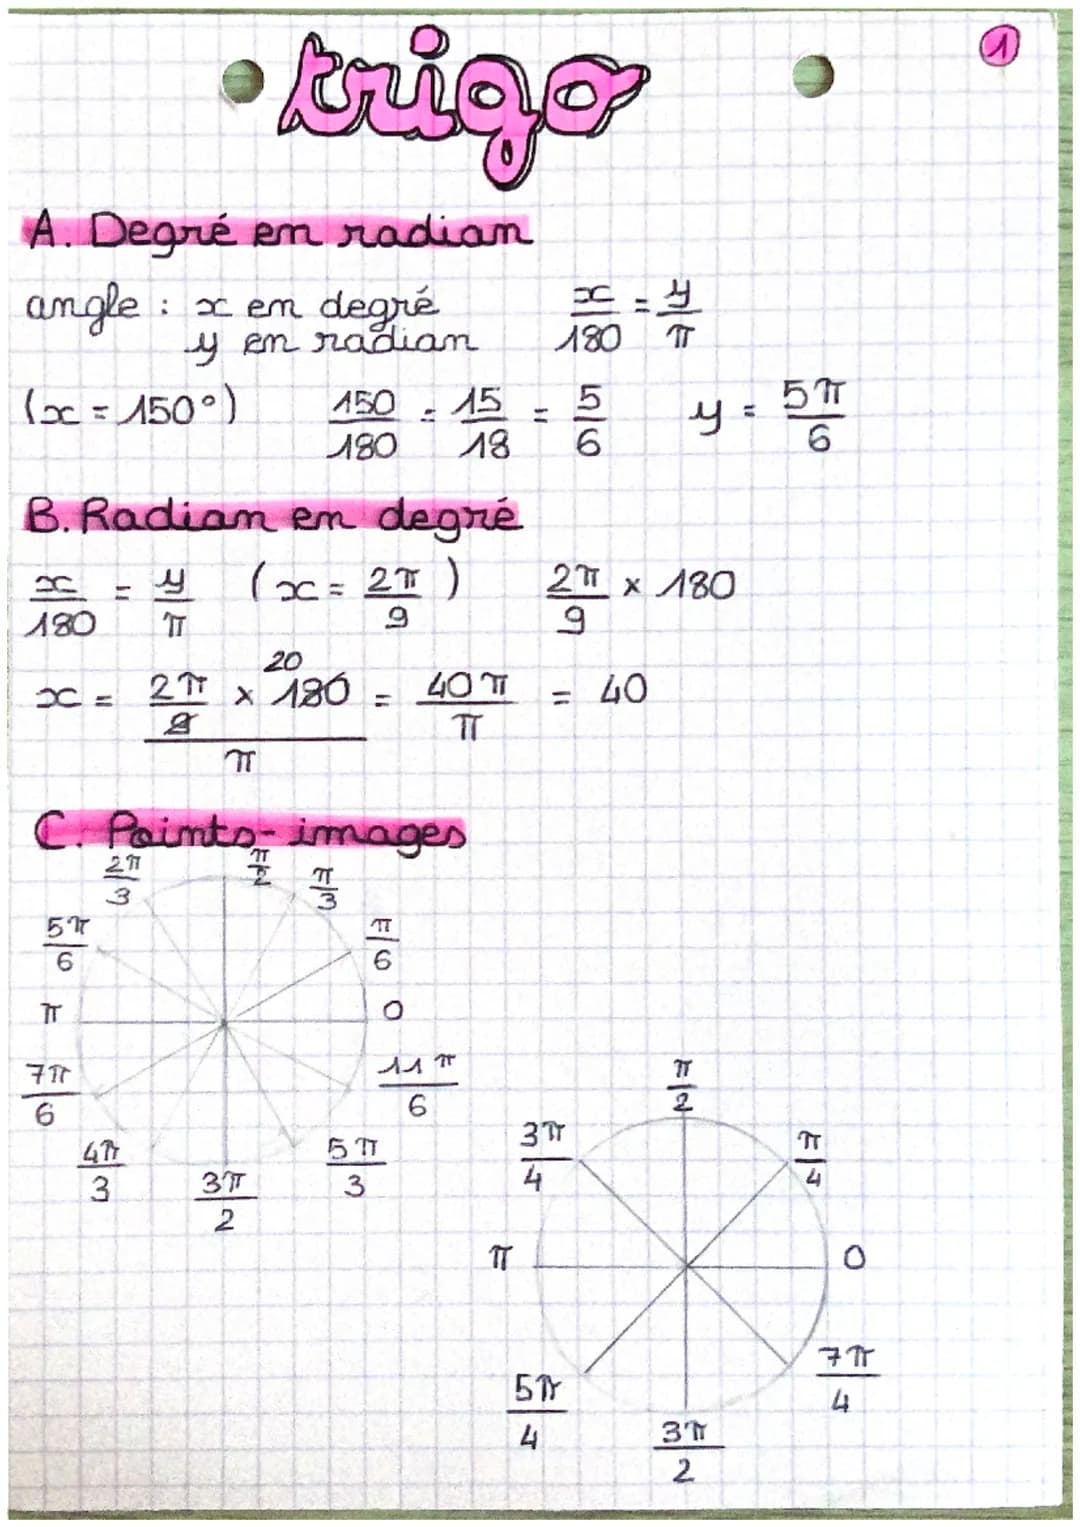 trigo
1
A. Degré en radian
angle : x en degré x/180 = y/π
y en radian
(x = 150°) 150/180 = 15/18 = 5/6 y = 5π/6
B. Radian en degré
x/180 = y/π (x = 2π/9) 2π/9 × 180
20
x = (2π/9 × 180)/π = 40π/π = 40
C. Points-images
2π/3 π/2 π/3
5π/6 π/6
π 0
7π/6 11π/6
4π/3 3π/2 5π/3
π/2
3π/4 π/4
π 0
5π/4 7π/4
3π/2